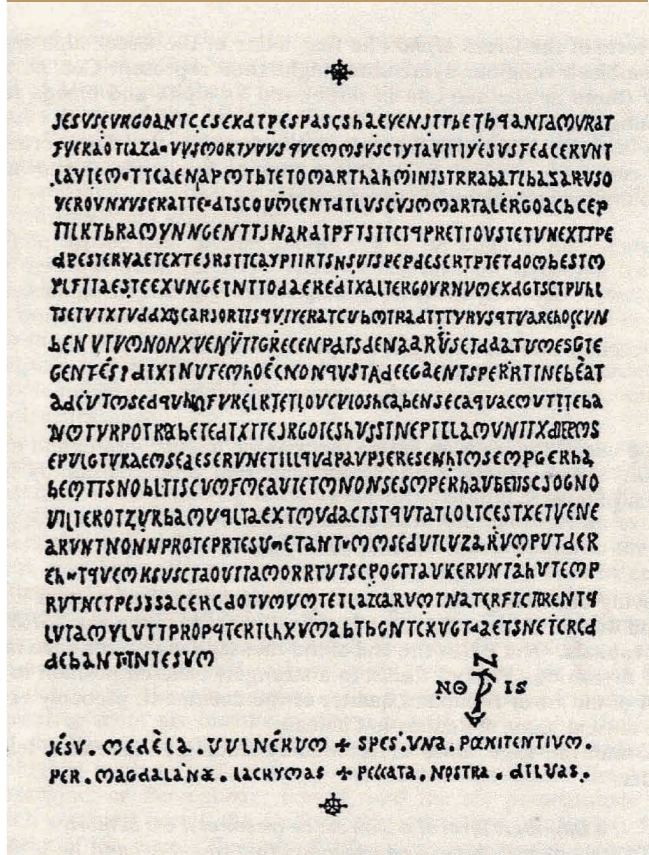 JESVSEVRGOANTCESEXATPESPASCShAEVENJTTbETh9ANTAMVRAT
FVERAOTIAZA-VVSMORTYVVS9VEMMSVSCTYTAVITIYESVSFEdCERVNT
LAVIEM-TTCAENAPMTbTETOMARThAhMINISTRRAbATLbAZARVSO
VEROVNXVSERATTE-dTSCOUMLENTdTLVSCVJMMARTALERGOACbCEP
TILKTbRAMYNNGENTTJNARATPFTSTICI9PRETTOVSTETVNEXTTPE
dPESTERVAETEXTEJRSTTCAYPIIRTSNSVTSPEPdESERTPTETdOMbESTM
PLFITAESTEEXVNGEINTTOdAEREdTXALTERGOVRNVMEXdGTSCTPVhL
TSETVTXTVddXGCARJORTIS9VIYERATCVbMTRAdTTTVRVS9TVAREhOCCVN
bENVIVMNONXVENVÏTGRECENPATSdENaARVSETdAaTVMESGTE
GENTÉSPdIXTNVFEMhOÉCNON9VSTAdEEGAENTSPERRTINEbÈAT
AdCVTMSEd9VhNFVRELRTETLOVCVLOShCAbENSECA9VAEMVTITEbA
NMTVRPOTRAbETEdTXTTEJRGOIEShVJSINEPILLAMVNTTXdEPMS
EPVLGTVRAEMSEdESERVNETILL9VdPAVPSERESENhTMSEMPGERhA
bEMTTSNObLTISCVMFMEAVIETMNONSESMPERhAVbENSCJOGNO
VILIEROTZVRbAMV9LTAEXTMVdACTST9VTATLOLTCESTXETVENE
ARVNTNONNPROTEPRTESU-ETANT-MMSEdVTLVZARVMPVTdER
Eh-T9VEMKSVSCTAOVITAMORRTVTSCPOGTTAVKERVNTAhVTEMP
RVTNCTPEJSSACERCdOTVMVMTETLAZCARVMTNATCRFICTRRENT9
LVTAMYLVTTPROP9TERTLhXVMAbTbGNTCXVGTdAETSNETCRCd
dEbANT·INTESVM
NO IS
JÉSV . MEdÈLA . VVLNÉRVM + SPES . VNA . PŒNITENTIVM .
PER . MAGdALANÆ . LACRYMAS + PECCATA . NOSTRA . dILVAS .